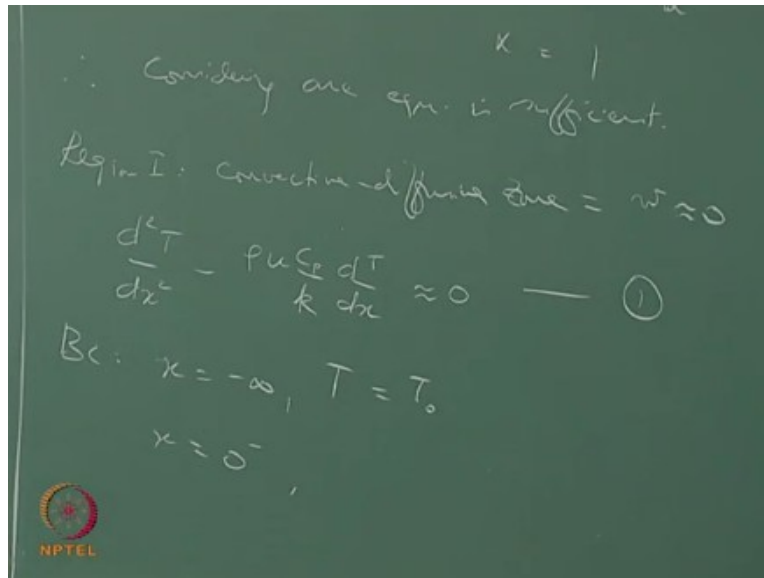 x = 1
∴ Considering one eqn. is sufficient.
Region I: Convective-diffusive zone = ẇ ≈ 0
d²T/dx² - ρu Cp/k dT/dx ≈ 0 — ①
BC: x = -∞, T = T₀
x = 0⁻,
NPTEL